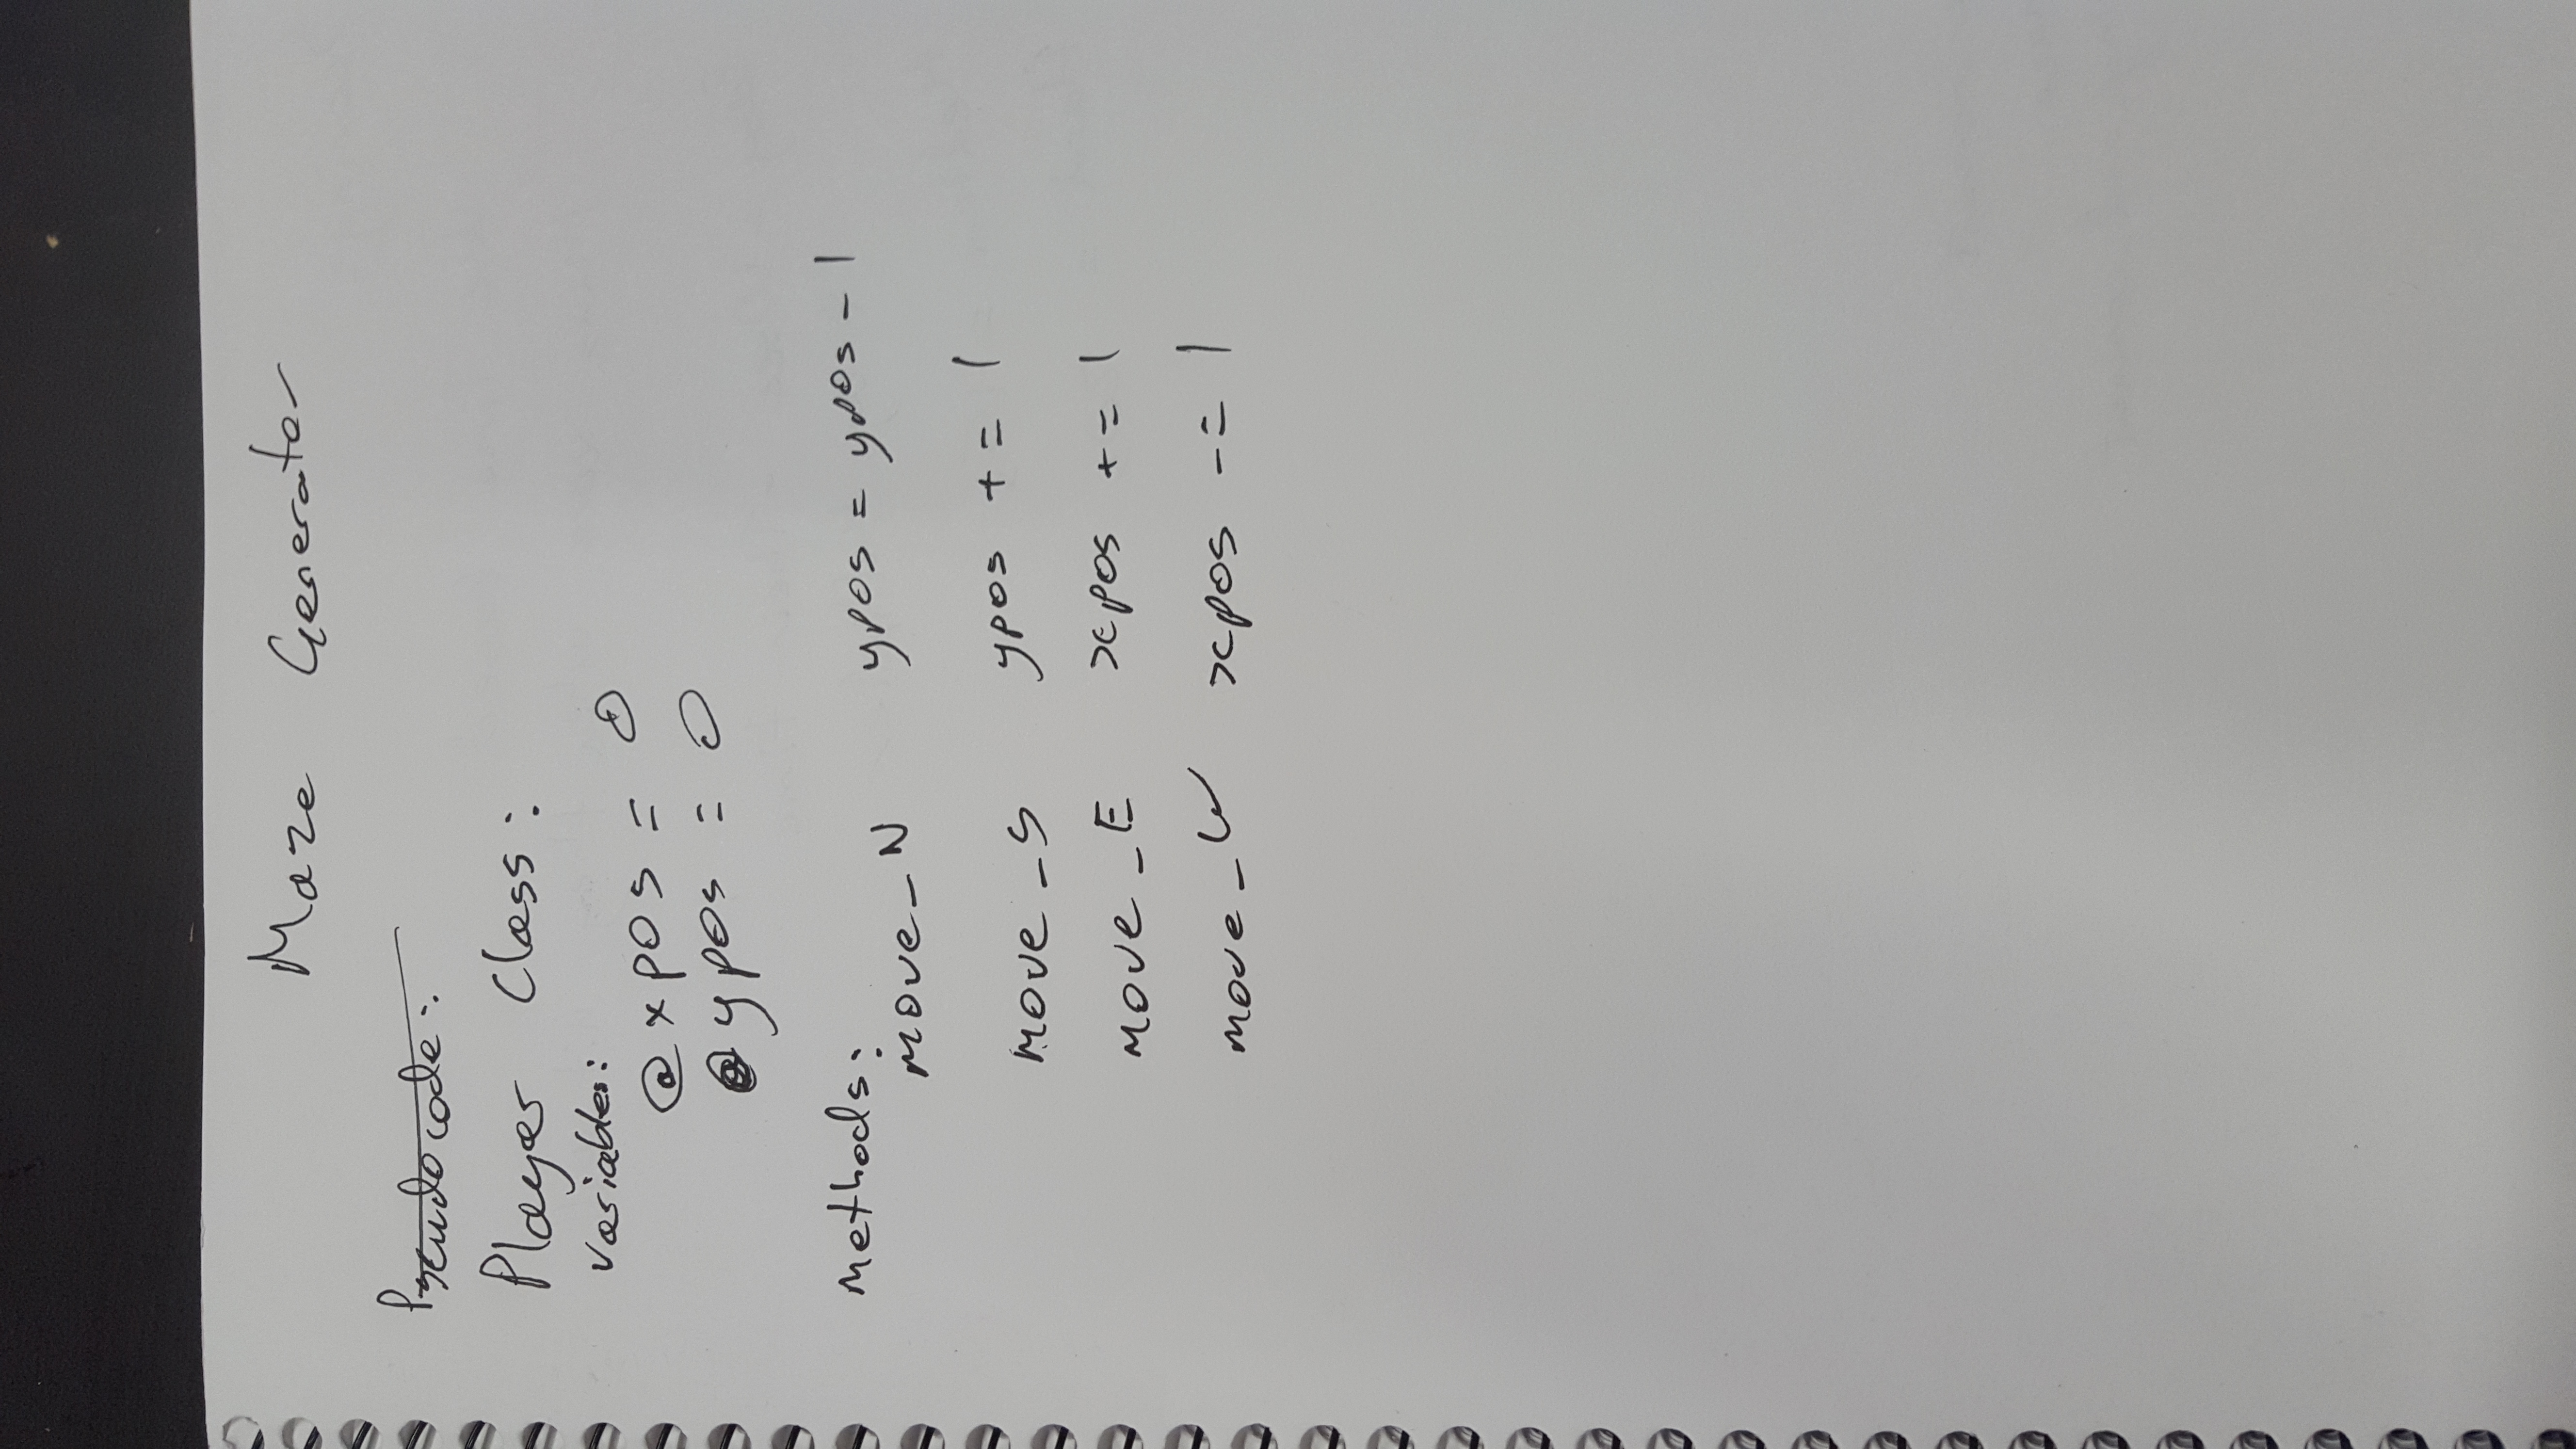 Maze Generator
Pseudocode:
Player Class:
variables:
@xpos = 0
@ypos = 0
methods:
move_N ypos = ypos - 1
move_S ypos += 1
move_E xpos += 1
move_W xpos -= 1